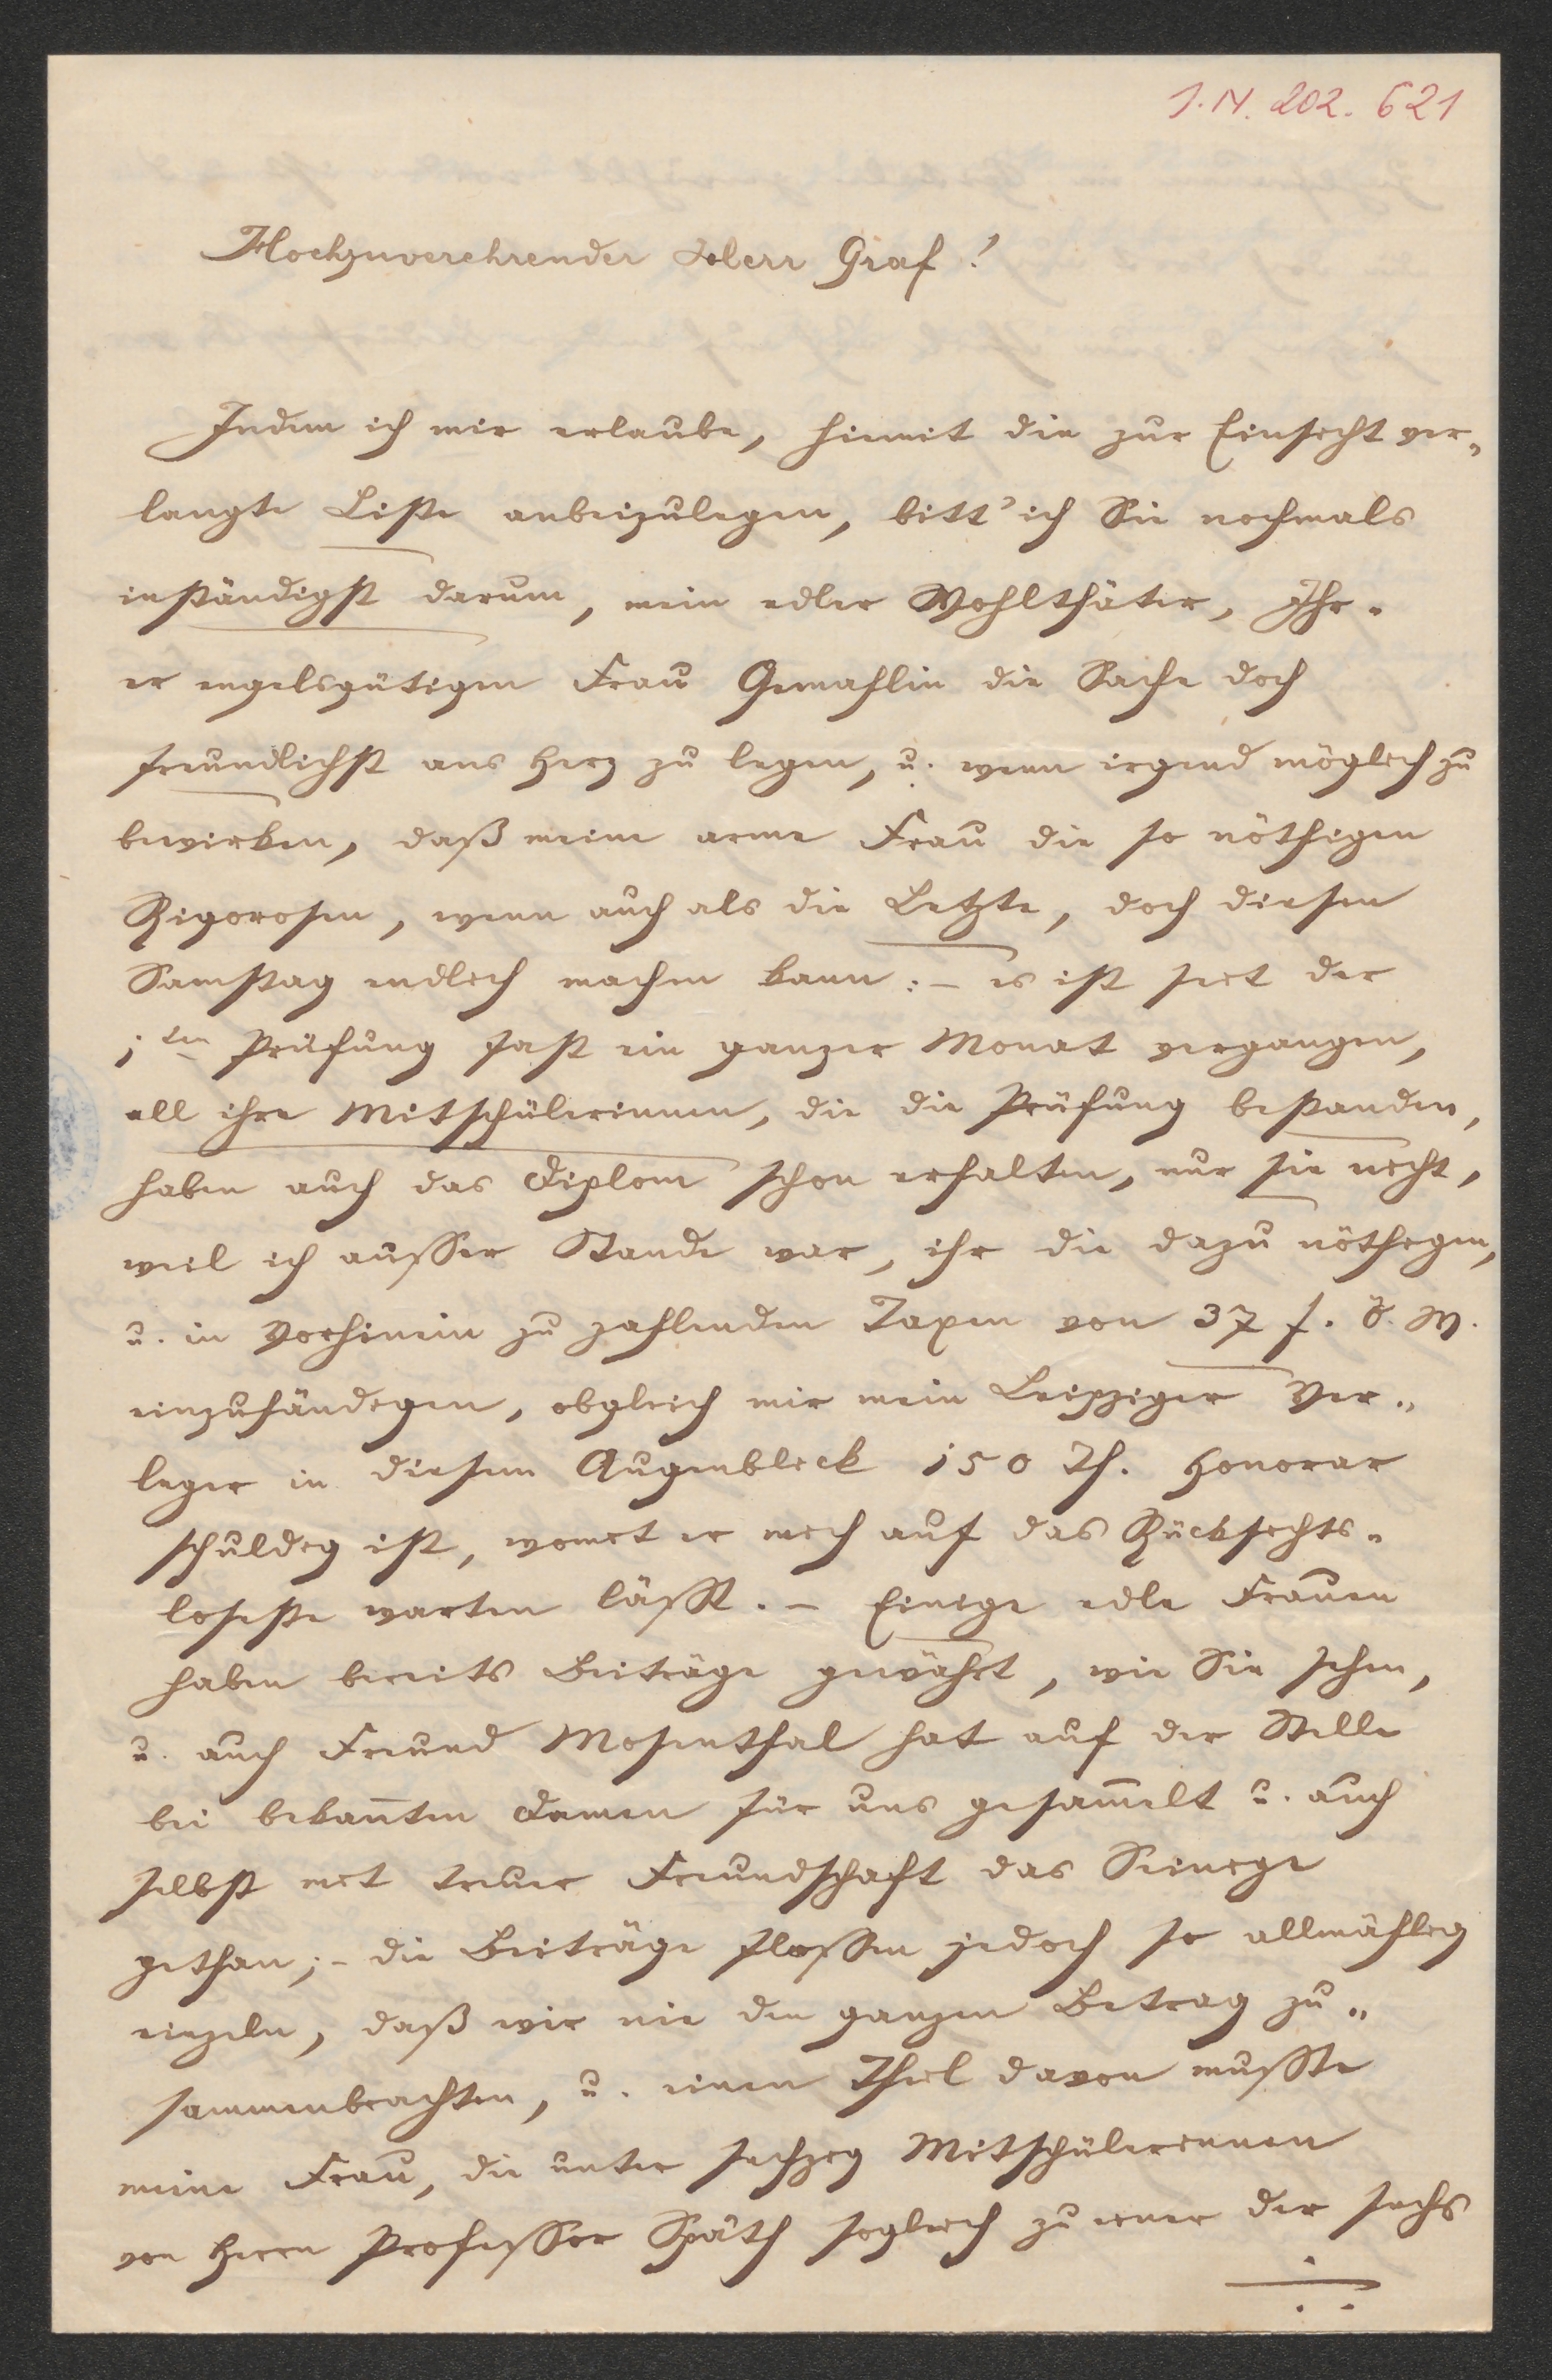 I. N. 202. 621
Hochzuverehrender Herr Graf!
Indem ich mir erlaube, hiemit die zur Einsicht ver„
langte Liste anbeizulegen, bitt' ich Sie nochmals
inständigst darum, mein edler Wohlthäter, Ihr„
er engelsgütigen Frau Gemahlin die Sache doch
freundlichst ans Herz zu legen, u. wenn irgend möglich zu
bewirken, daß meine arme Frau die so nöthigen
Rigorosen, wenn auch als die Letzte, doch diesen
Samstag endlich machen kann: – es ist seit der
1ten Prüfung fast ein ganzer Monat vergangen,
all ihre Mitschülerinnen, die die Prüfung bestanden,
haben auch das Diplom schon erhalten, nur sie nicht,
weil ich ausser Stande war, ihr die dazu nöthigen,
u. in Vorhinein zu zahlenden Taxen von 37 f. ö. W.
einzuhändigen, obgleich mir mein Leipziger Ver„
leger in diesem Augenblick 150 Th. Honorar
schuldig ist, womit er mich auf das Rücksichts„
loseste warten lässt. – Einige edle Frauen
haben bereits Beiträge gewährt, wie Sie sehen,
u. auch Freund Mosenthal hat auf der Stelle
bei bekan̄ten Damen für uns gesam̄elt u. auch
selbst mit treuer Freundschaft das Seinige
gethan; – die Beiträge flossen jedoch so allmählig
einzeln, daß wir nie den ganzen Betrag zu„
sammenbrachten, u. einen Theil davon musste
meine Frau, die unter sechzig Mitschülerinnen
von Herrn Professor Späth sogleich zu einer der sechs
./..